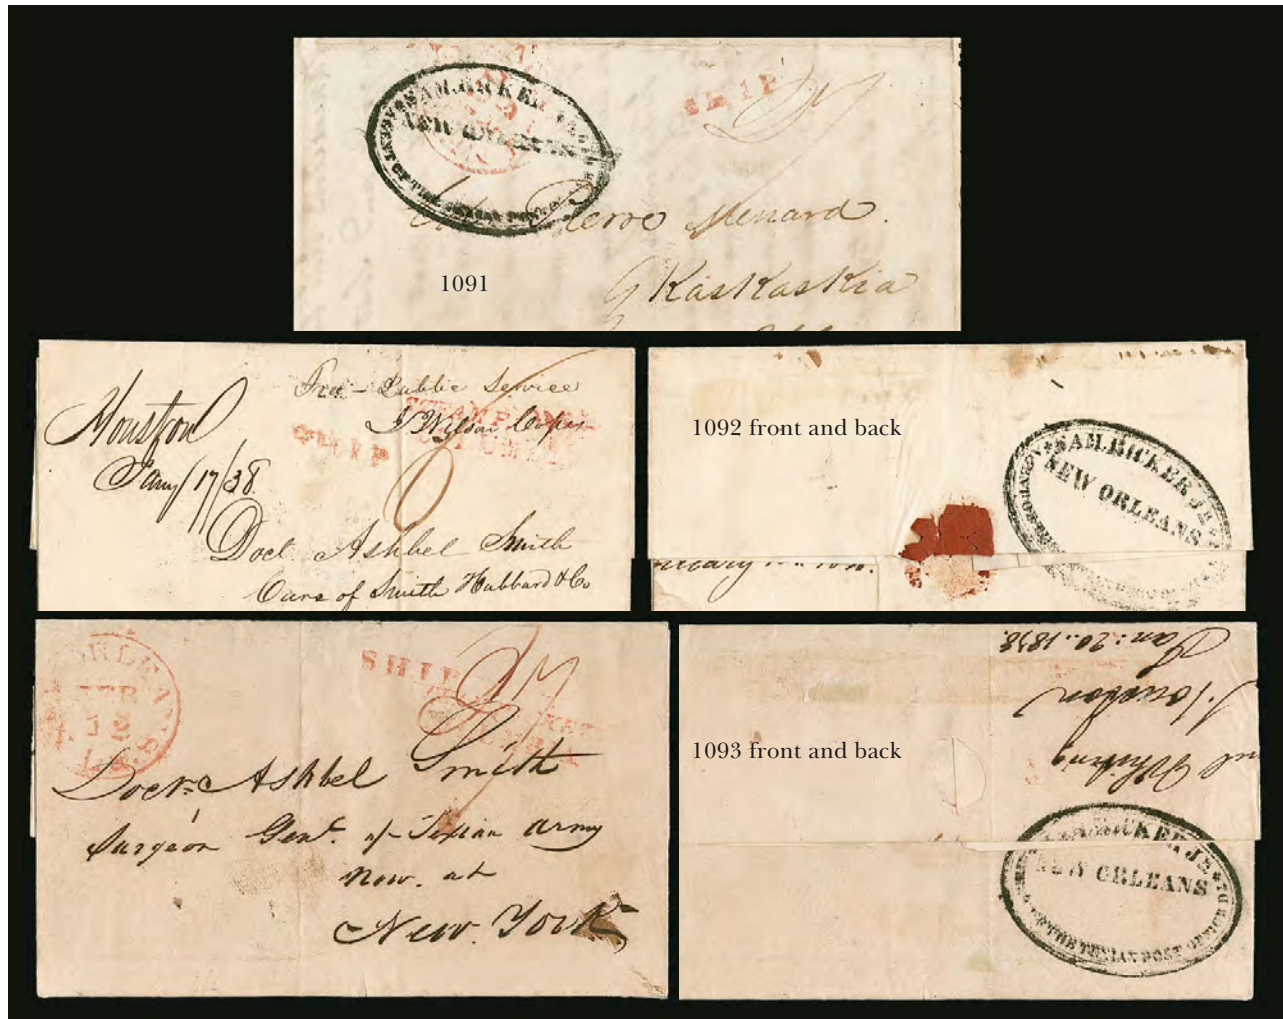 SAM. RICKER JR
NEW ORLEANS
AGENT OF THE TEXIAN POST OFFICE
SHIP
Pierre Menard.
Kaskaskia
1091
Houston
Jany 17/38.
Free - Public Service
J Wilson Copes
SHIP
STEAM PACKET
COLUMBIA
6
Doct Ashbel Smith
Care of Smith Hubbard & Co
1092 front and back
SAM. RICKER JR
NEW ORLEANS
ORLEANS
FEB
12
LA.
SHIP
Doct. Ashbel Smith
Surgeon Genl. of Texian army
Now. at
New. York
1093 front and back
Jan: 20.. 1838.
Houston
Whiting
SAM. RICKER JR
NEW ORLEANS
AGENT OF THE TEXIAN POST OFFICE